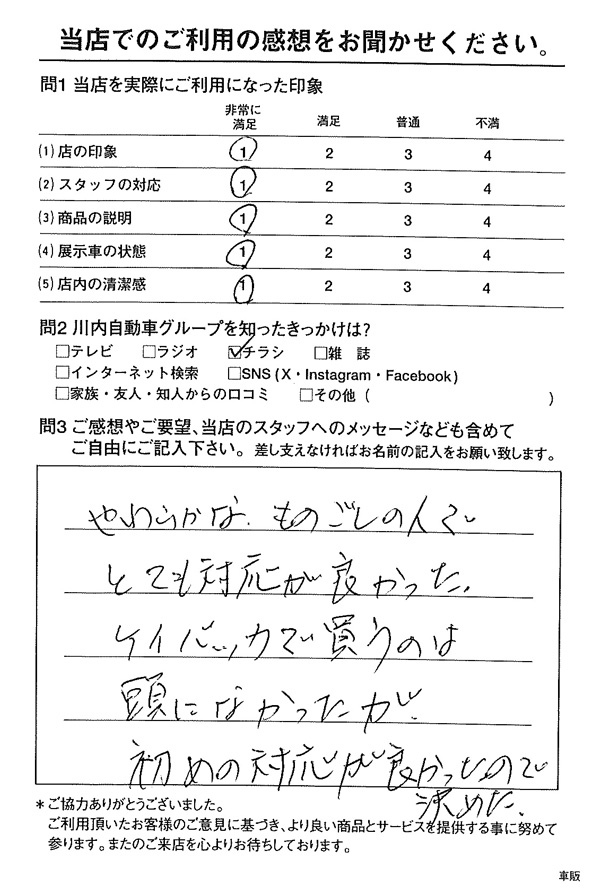 当店でのご利用の感想をお聞かせください。
問1 当店を実際にご利用になった印象
非常に満足 満足 普通 不満
(1) 店の印象 1 2 3 4
(2) スタッフの対応 1 2 3 4
(3) 商品の説明 1 2 3 4
(4) 展示車の状態 1 2 3 4
(5) 店内の清潔感 1 2 3 4
問2 川内自動車グループを知ったきっかけは?
□テレビ □ラジオ ☑チラシ □雑 誌
□インターネット検索 □SNS(X・Instagram・Facebook)
□家族・友人・知人からの口コミ □その他( )
問3 ご感想やご要望、当店のスタッフへのメッセージなども含めて
ご自由にご記入下さい。差し支えなければお名前の記入をお願い致します。
やわらかな、ものごしの人で
とても対応が良かった。
ケイバッカで買うのは
頭になかったが、
初めの対応が良かったので
決めた。
*ご協力ありがとうございました。
ご利用頂いたお客様のご意見に基づき、より良い商品とサービスを提供する事に努めて
参ります。またのご来店を心よりお待ちしております。
車販